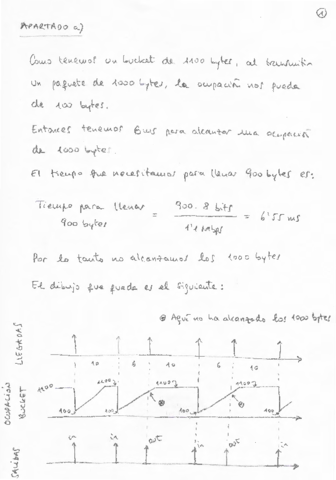 1
APARTADO a)
Como tenemos un bucket de 1100 bytes, al transmitir
un paquete de 1000 bytes, la ocupación nos queda
de 100 bytes.
Entonces tenemos 6 ms para alcanzar una ocupación
de 1000 bytes.
El tiempo que necesitamos para llenar 900 bytes es:
Tiempo para llenar 900 bytes = 900 · 8 bits / 1'1 Mbps = 6'55 ms
Por lo tanto no alcanzamos los 1000 bytes
El dibujo que queda es el siguiente:
⊛ Aquí no ha alcanzado los 1000 bytes
LLEGADAS
10 6 10 6 10
OCUPACIÓN
BUCKET
1100 1100 1100 1100
100 100 100 100
in in out in out in
SALIDAS